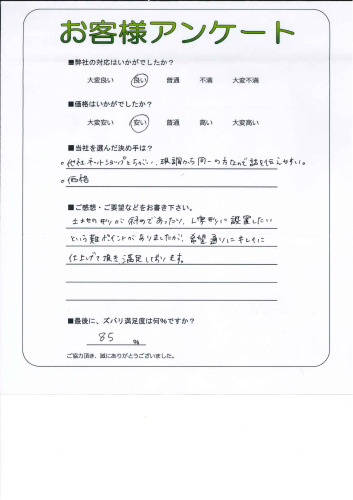 お客様アンケート
■弊社の対応はいかがでしたか？
大変良い 良い 普通 不満 大変不満
■価格はいかがでしたか？
大変安い 安い 普通 高い 大変高い
■当社を選んだ決め手は？
。他社ネットショップとちがい、現調から同一の方なので話を伝えやすい。
。価格
■ご感想・ご要望などをお書き下さい。
土地の形が斜めであったり、L字形に設置したい
という難ポイントがありましたが、希望通りにキレイに
仕上げて頂き満足しております。
■最後に、ズバリ満足度は何％ですか？
85 ％
ご協力頂き、誠にありがとうございました。